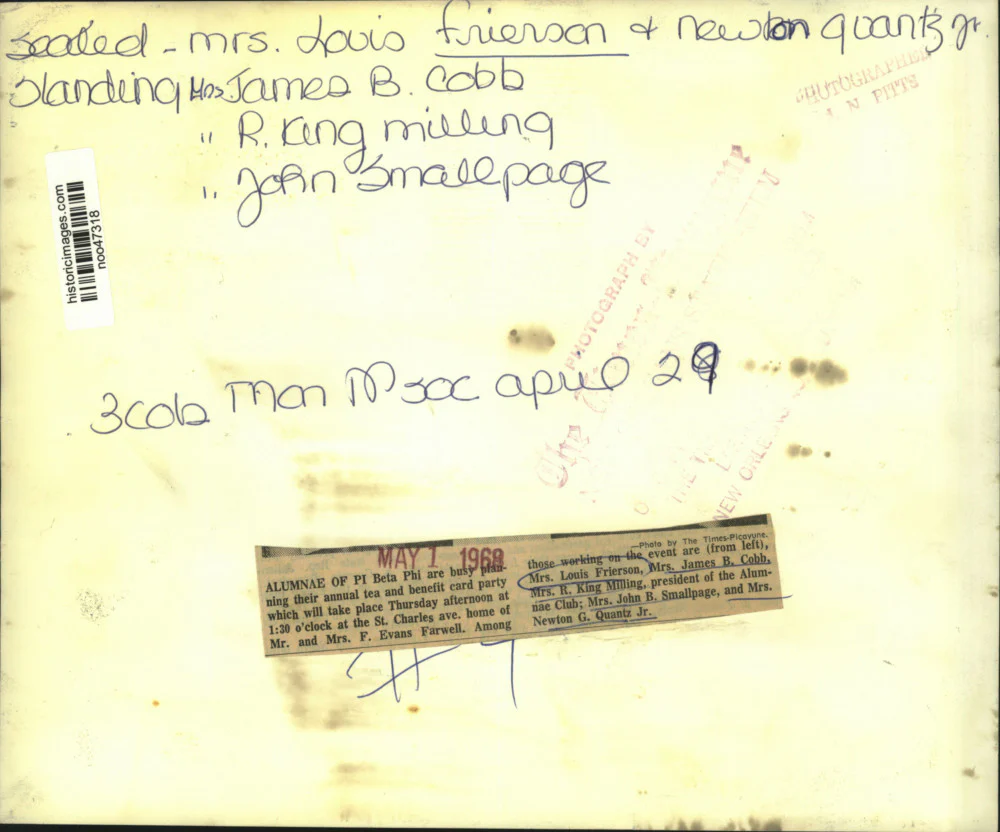 seated - mrs. Louis Frierson & newton quantz jr.
standing Mrs James B. Cobb
" R. King milling
" John Smallpage
PHOTOGRAPHER
N PITTS
historicimages.com
noo47318
PHOTOGRAPH BY
The
NEW ORLEANS
3 cols Mon soc april 29
MAY 1 1968
ALUMNAE OF PI Beta Phi are busy plan-
ning their annual tea and benefit card party
which will take place Thursday afternoon at
1:30 o'clock at the St. Charles ave. home of
Mr. and Mrs. F. Evans Farwell. Among
—Photo by The Times-Picayune.
those working on the event are (from left),
Mrs. Louis Frierson, Mrs. James B. Cobb,
Mrs. R. King Milling, president of the Alum-
nae Club; Mrs. John B. Smallpage, and Mrs.
Newton G. Quantz Jr.